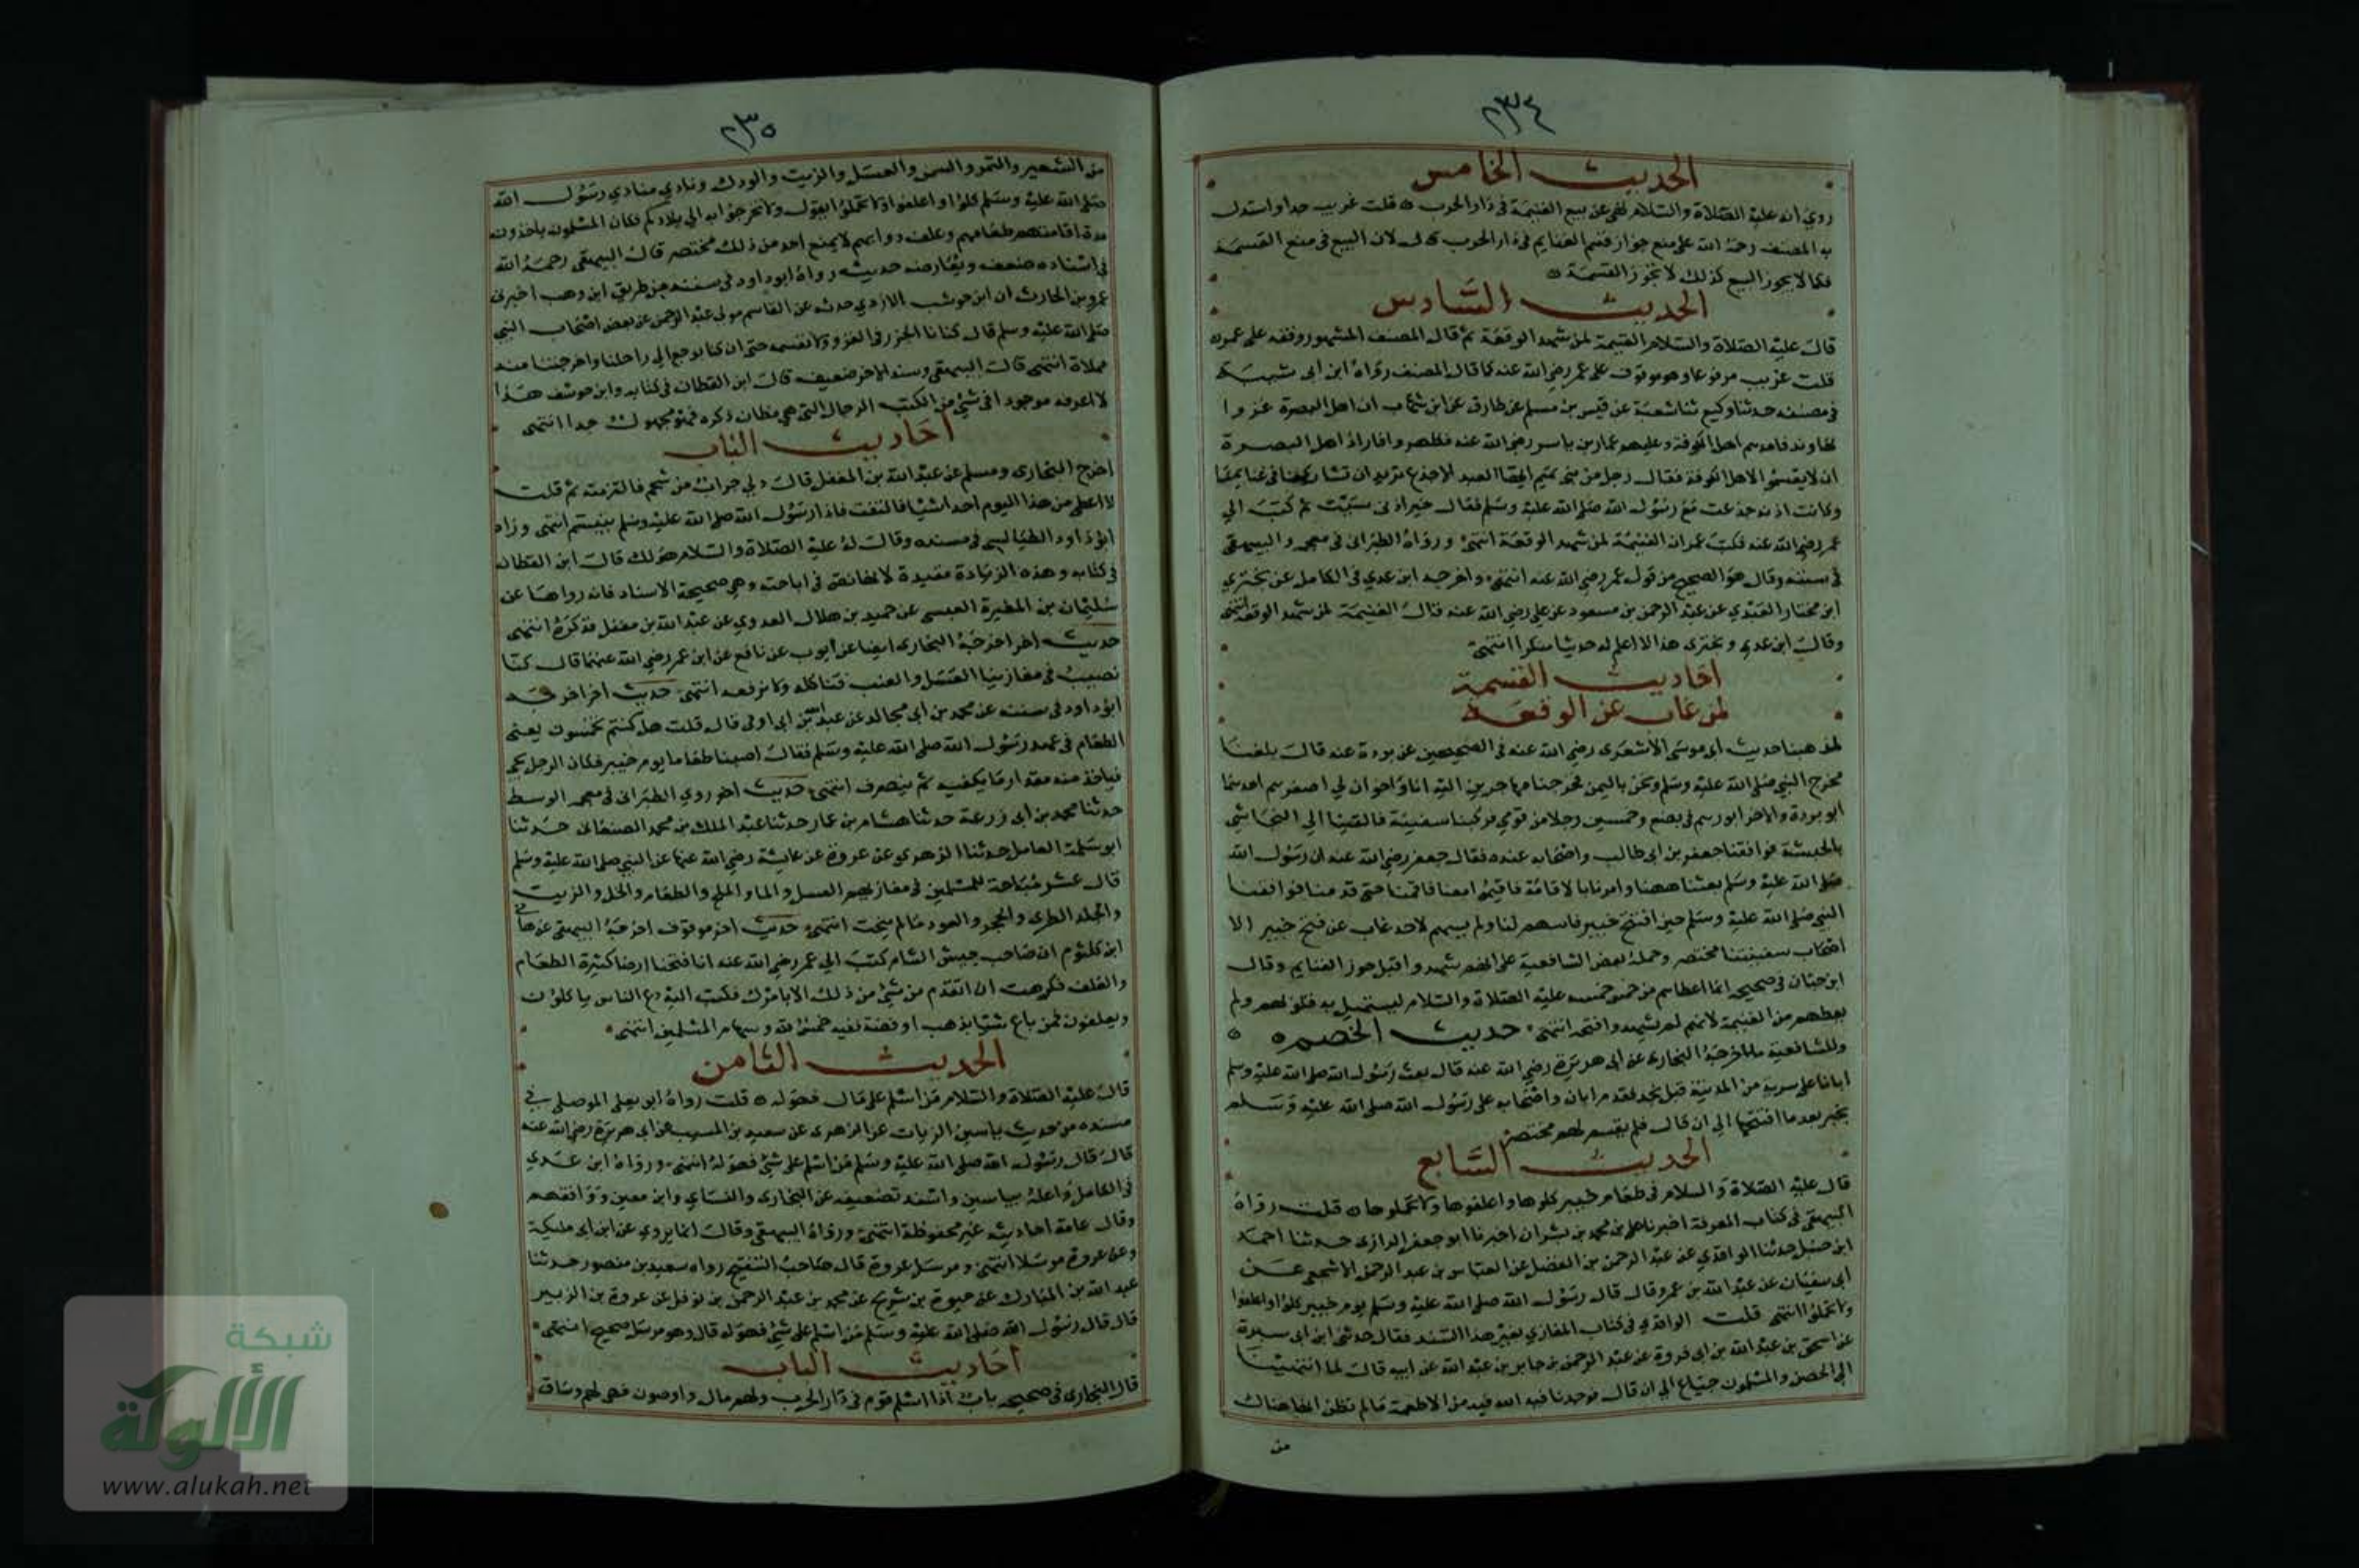 ٢٣٤
الحديث الخامس
روي انه عليه الصلاة والسلام نهى عن بيع الغنيمة في دار الحرب ه قلت غريب جدا واستدل
به المصنف رحمه الله على منع جواز قسم الغنايم في دار الحرب قال لان البيع في منع القسمة
فكما لا يجوز البيع كذلك لا تجوز القسمة ه
الحديث السادس
قال عليه الصلاة والسلام الغنيمة لمن شهد الوقعة ثم قال المصنف المشهور وقفه على عمر ه
قلت غريب مرفوعا وهو موقوف على عمر رضي الله عنه كما قال المصنف رواه ابن ابي شيبة
في مصنفه حدثنا وكيع ثنا شعبة عن قيس بن مسلم عن طارق عن ابن شهاب ان اهل البصرة غزوا
نهاوند فامدهم اهل الكوفة وعليهم عمار بن ياسر رضي الله عنه فظهروا فاراد اهل البصرة
ان لا يقسموا لاهل الكوفة فقال رجل من بني تميم ايها العبد الاجدع تريد ان تشاركنا في غنايمنا
وكانت اذنه جدعت مع رسول الله صلى الله عليه وسلم فقال خير اذني سببت ثم كتب الى
عمر رضي الله عنه فكتب عمر ان الغنيمة لمن شهد الوقعة انتهى ورواه الطبراني في معجمه والبيهقي
في سننه وقال هو الصحيح من قول عمر رضي الله عنه انتهى واخرجه ابن عدي في الكامل عن بختري
ابن مختار العبدي عن عبد الرحمن بن مسعود عن علي رضي الله عنه قال الغنيمة لمن شهد الوقعة انتهى
وقال ابن عدي وبختري هذا لا اعلم له حديثا منكرا انتهى
احاديث القسمة
لمن غاب عن الوقعة
لمذهبنا حديث ابي موسى الاشعري رضي الله عنه في الصحيحين عن بردة عنه قال بلغنا
مخرج النبي صلى الله عليه وسلم ونحن باليمن فخرجنا مهاجرين اليه انا واخوان لي انا اصغرهم احدهما
ابو بردة والاخر ابو رهم في بضع وخمسين رجلا من قومي فركبنا سفينة فالقتنا الى النجاشي
بالحبشة فوافقنا جعفر بن ابي طالب واصحابه عنده فقال جعفر رضي الله عنه ان رسول الله
صلى الله عليه وسلم بعثنا ههنا وامرنا بالاقامة فاقيموا معنا فاقمنا حتى قدمنا فوافقنا
النبي صلى الله عليه وسلم حين افتتح خيبر فاسهم لنا ولم يسهم لاحد غاب عن فتح خيبر الا
اصحاب سفينتنا مختصر وحمله بعض الشافعية على انهم شهدوا قبل حوز الغنايم وقال
ابن حبان في صحيحه انما اعطاهم من خمس خمسه عليه الصلاة والسلام ليستميل به قلوبهم ولم
يعطهم من الغنيمة لانهم لم يشهدوا فتحه انتهى حديث الخصم ه
وللشافعية ما اخرجه البخاري عن ابي هريرة رضي الله عنه قال بعث رسول الله صلى الله عليه وسلم
ابانا على سرية من المدينة قبل نجد فقدم ابان واصحابه على رسول الله صلى الله عليه وسلم
بخيبر بعد ما افتتحها الى ان قال فلم يقسم لهم مختصر
الحديث السابع
قال عليه الصلاة والسلام في طعام خيبر كلوها واعلفوها ولا تحملوها ه قلت رواه
البيهقي في كتاب المعرفة اخبرنا علي بن محمد بن بشران اخبرنا ابو جعفر الرازي حدثنا احمد
ابن حنبل حدثنا الواقدي عن عبد الرحمن بن الفضل عن العباس بن عبد الرحمن الاشجعي عن
ابي سفيان عن عبد الله بن عمرو قال قال رسول الله صلى الله عليه وسلم يوم خيبر كلوا واعلفوا
ولا تحملوا انتهى قلت الواقدي في كتاب المغازي بغير هذا السند فقال حدثني ابن ابي سبرة
عن اسحق بن عبد الله بن ابي فروة عن عبد الرحمن بن جابر بن عبد الله عن ابيه قال لما انتهينا
الى الحصن والمسلمون جياع الى ان قال فوجدنا فيه من الاطعمة ما لم نظن انها هناك
من
٢٣٥
من الشعير والتمر والسمن والعسل والزيت والودك ونادي منادي رسول الله
صلى الله عليه وسلم كلوا واعلفوا ولا تحملوا يقول ولا تخرجوا به الى بلادكم فكان المسلمون ياخذون
مدة اقامتهم طعامهم وعلف دوابهم لا يمنع احد من ذلك مختصر قال البيهقي رحمه الله
في اسناده ضعف ويعارضه حديث رواه ابو داود في سننه من طريق ابن وهب اخبرني
عمرو بن الحارث ان ابن حوشب الازدي حدثه عن القاسم مولى عبد الرحمن عن بعض اصحاب النبي
صلى الله عليه وسلم قال كنا ناكل الجزر في الغزو ولا نقسمه حتى ان كنا لنرجع الى رحالنا واخرجتنا منه
مملاة انتهى قال البيهقي وسند الاخر ضعيف قال ابن القطان في كتابه وابن حوشف هذا
لا اعرفه موجودا في شيء من الكتب الرجال التي هي مظان ذكره فهو مجهول جدا انتهى
احاديث الباب
اخرج البخاري ومسلم عن عبد الله بن المغفل قال دلي جراب من شحم فالتزمته ثم قلت
لا اعطي من هذا اليوم احدا شيئا فالتفت فاذا رسول الله صلى الله عليه وسلم يبتسم انتهى وزاد
ابو داود الطيالسي في مسنده وقال له عليه الصلاة والسلام هو لك قال ابن القطان
في كتابه وهذه الزيادة مفيدة لانها نص في اباحته وهي صحيحة الاسناد فانه رواها عن
سليمان بن المغيرة العبسي عن حميد بن هلال العدوي عن عبد الله بن مغفل فذكره انتهى
حديث اخر اخرجه البخاري ايضا عن ايوب عن نافع عن ابن عمر رضي الله عنهما قال كنا
نصيب في مغازينا العسل والعنب فناكله ولا نرفعه انتهى حديث اخر اخرجه
ابو داود في سننه عن محمد بن ابي مجالد عن عبد الله بن ابي اوفى قال قلت هل كنتم تخمسون يعني
الطعام في عهد رسول الله صلى الله عليه وسلم فقال اصبنا طعاما يوم خيبر فكان الرجل يجي
فياخذ منه مقدار ما يكفيه ثم ينصرف انتهى حديث اخر روي الطبراني في معجمه الوسط
حدثنا محمد بن ابي زرعة حدثنا هشام بن عمار حدثنا عبد الملك بن محمد الصنعاني حدثنا
ابو سلمة العاملي حدثنا الزهري عن عروة عن عايشة رضي الله عنها عن النبي صلى الله عليه وسلم
قال عشر مباحة للمسلمين في مغازيهم العسل والما والملح والطعام والخل والزبيب
والجلد الطري والحجر والعود ما لم ينحت انتهى حديث اخر موقوف اخرجه البيهقي عن هاني
ابن كلثوم ان صاحب جيش الشام كتب الى عمر رضي الله عنه انا فتحنا ارضا كثيرة الطعام
والعلف فكرهت ان اتقدم من شيء من ذلك الا بامرك فكتب اليه دع الناس ياكلون
ويعلفون فمن باع شيئا بذهب او فضة ففيه خمس لله وسهام المسلمين انتهى
الحديث الثامن
قال عليه الصلاة والسلام من اسلم على مال فهو له ه قلت رواه ابو يعلى الموصلي في
مسنده من حديث ياسين الزيات عن الزهري عن سعيد بن المسيب عن ابي هريرة رضي الله عنه
قال قال رسول الله صلى الله عليه وسلم من اسلم على شيء فهو له انتهى ورواه ابن عدي
في الكامل واعله بياسين واسند تضعيفه عن البخاري والنساي وابن معين ووافقهم
وقال عامة احاديثه غير محفوظة انتهى ورواه البيهقي وقال انما يروي عن ابن ابي مليكة
وعن عروة مرسلا انتهى ومرسل عروة قال صاحب التنقيح رواه سعيد بن منصور حدثنا
عبد الله بن المبارك عن حيوة بن شريح عن محمد بن عبد الرحمن بن نوفل عن عروة بن الزبير
قال قال رسول الله صلى الله عليه وسلم من اسلم على شيء فهو له قال وهو مرسل صحيح انتهى
احاديث الباب
قال البخاري في صحيحه باب اذا اسلم قوم في دار الحرب ولهم مال وارضون فهي لهم وساق
شبكة
الألوكة
www.alukah.net